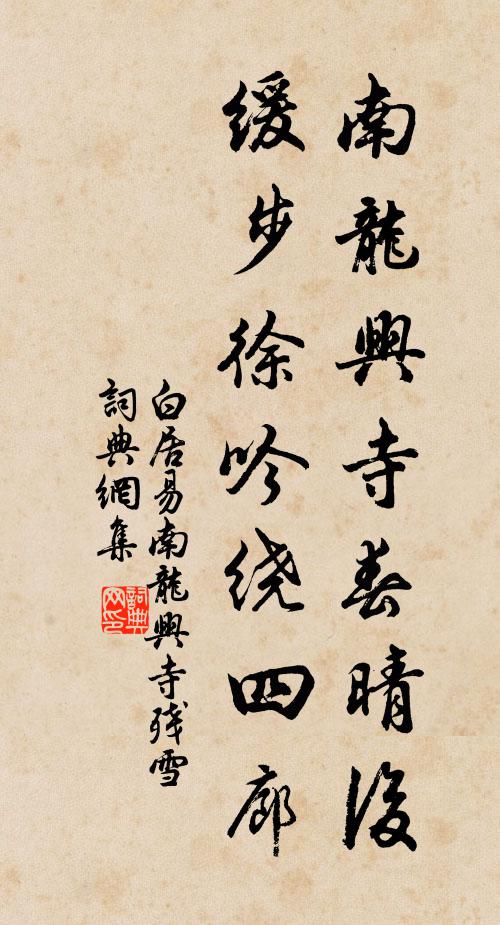 南龍興寺春晴後
緩步徐吟绕四廊
白居易南龍興寺殘雪
詞典網集
詞典
网印